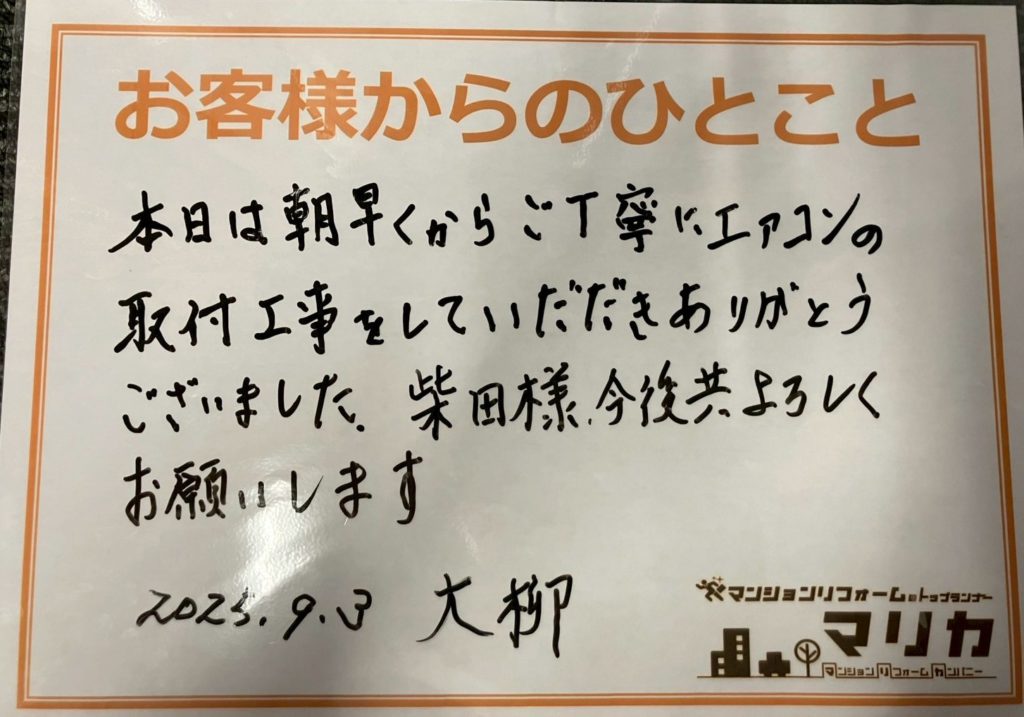 お客様からのひとこと
本日は朝早くからご丁寧にエアコンの
取付工事をしていただきありがとう
ございました。柴田様、今後共よろしく
お願いします
2025.9.3 大柳
マンションリフォームのトップランナー
マリカ
マンションリフォームカンパニー